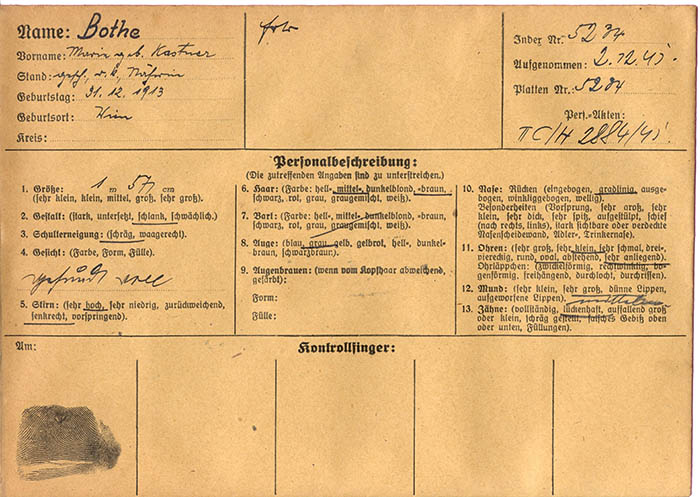 Name: Bothe
Vorname: Maria geb. Kastner
Stand: gesch., r. k., Näherin
Geburtstag: 31. 12. 1913
Geburtsort: Wien
Kreis:
Index Nr. 5234
Aufgenommen: 2. 12. 41.
Platten Nr.: 5234
Pers.-Akten:
II C/H 2884/41
Personalbeschreibung:
(Die zutreffenden Angaben sind zu unterstreichen.)
1. Größe: 1 m 57 cm
(sehr klein, klein, mittel, groß, sehr groß).
2. Gestalt: (stark, untersetzt, schlank, schwächlich).
3. Schulterneigung: (schräg, waagerecht).
4. Gesicht: (Farbe, Form, Fülle).
gesund voll
5. Stirn: (sehr hoch, sehr niedrig, zurückweichend,
senkrecht, vorspringend).
6. Haar: (Farbe: hell-, mittel-, dunkelblond, -braun,
schwarz, rot, grau, graugemischt, weiß).
7. Bart: (Farbe: hell-, mittel-, dunkelblond, -braun,
schwarz, rot, grau, graugemischt, weiß).
8. Auge: (blau, grau, gelb, gelbrot, hell-, dunkel-
braun, schwarzbraun.).
9. Augenbrauen: (wenn vom Kopfhaar abweichend,
gefärbt):
Form:
Fülle:
10. Nase: Rücken (eingebogen, gradlinig, ausge-
bogen, winkliggebogen, wellig).
Besonderheiten (Vorsprung, sehr groß, sehr
klein, sehr dick, sehr spitz, aufgestülpt, schief
(nach rechts, links), stark sichtbare oder verdeckte
Nasenscheidewand, Adler-, Trinkernase).
11. Ohren: (sehr groß, sehr klein, sehr schmal, drei-,
viereckig, rund, oval, abstehend, sehr anliegend).
Ohrläppchen: (zwickelförmig, rechtwinklig, bo-
genförmig, freihängend, durchlocht, durchrissen).
12. Mund: (sehr klein, sehr groß, dünne Lippen,
aufgeworfene Lippen). mittel
13. Zähne: (vollständig, lückenhaft, auffallend groß
oder klein, schräg gestellt, falsches Gebiß oben
oder unten, Füllungen).
Am:
Kontrollfinger: